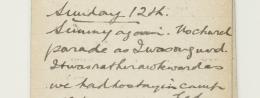 Sunday 12th.
Sunny again. No church
parade as I was on guard.
It was rather awkward as
we had to stay in camp